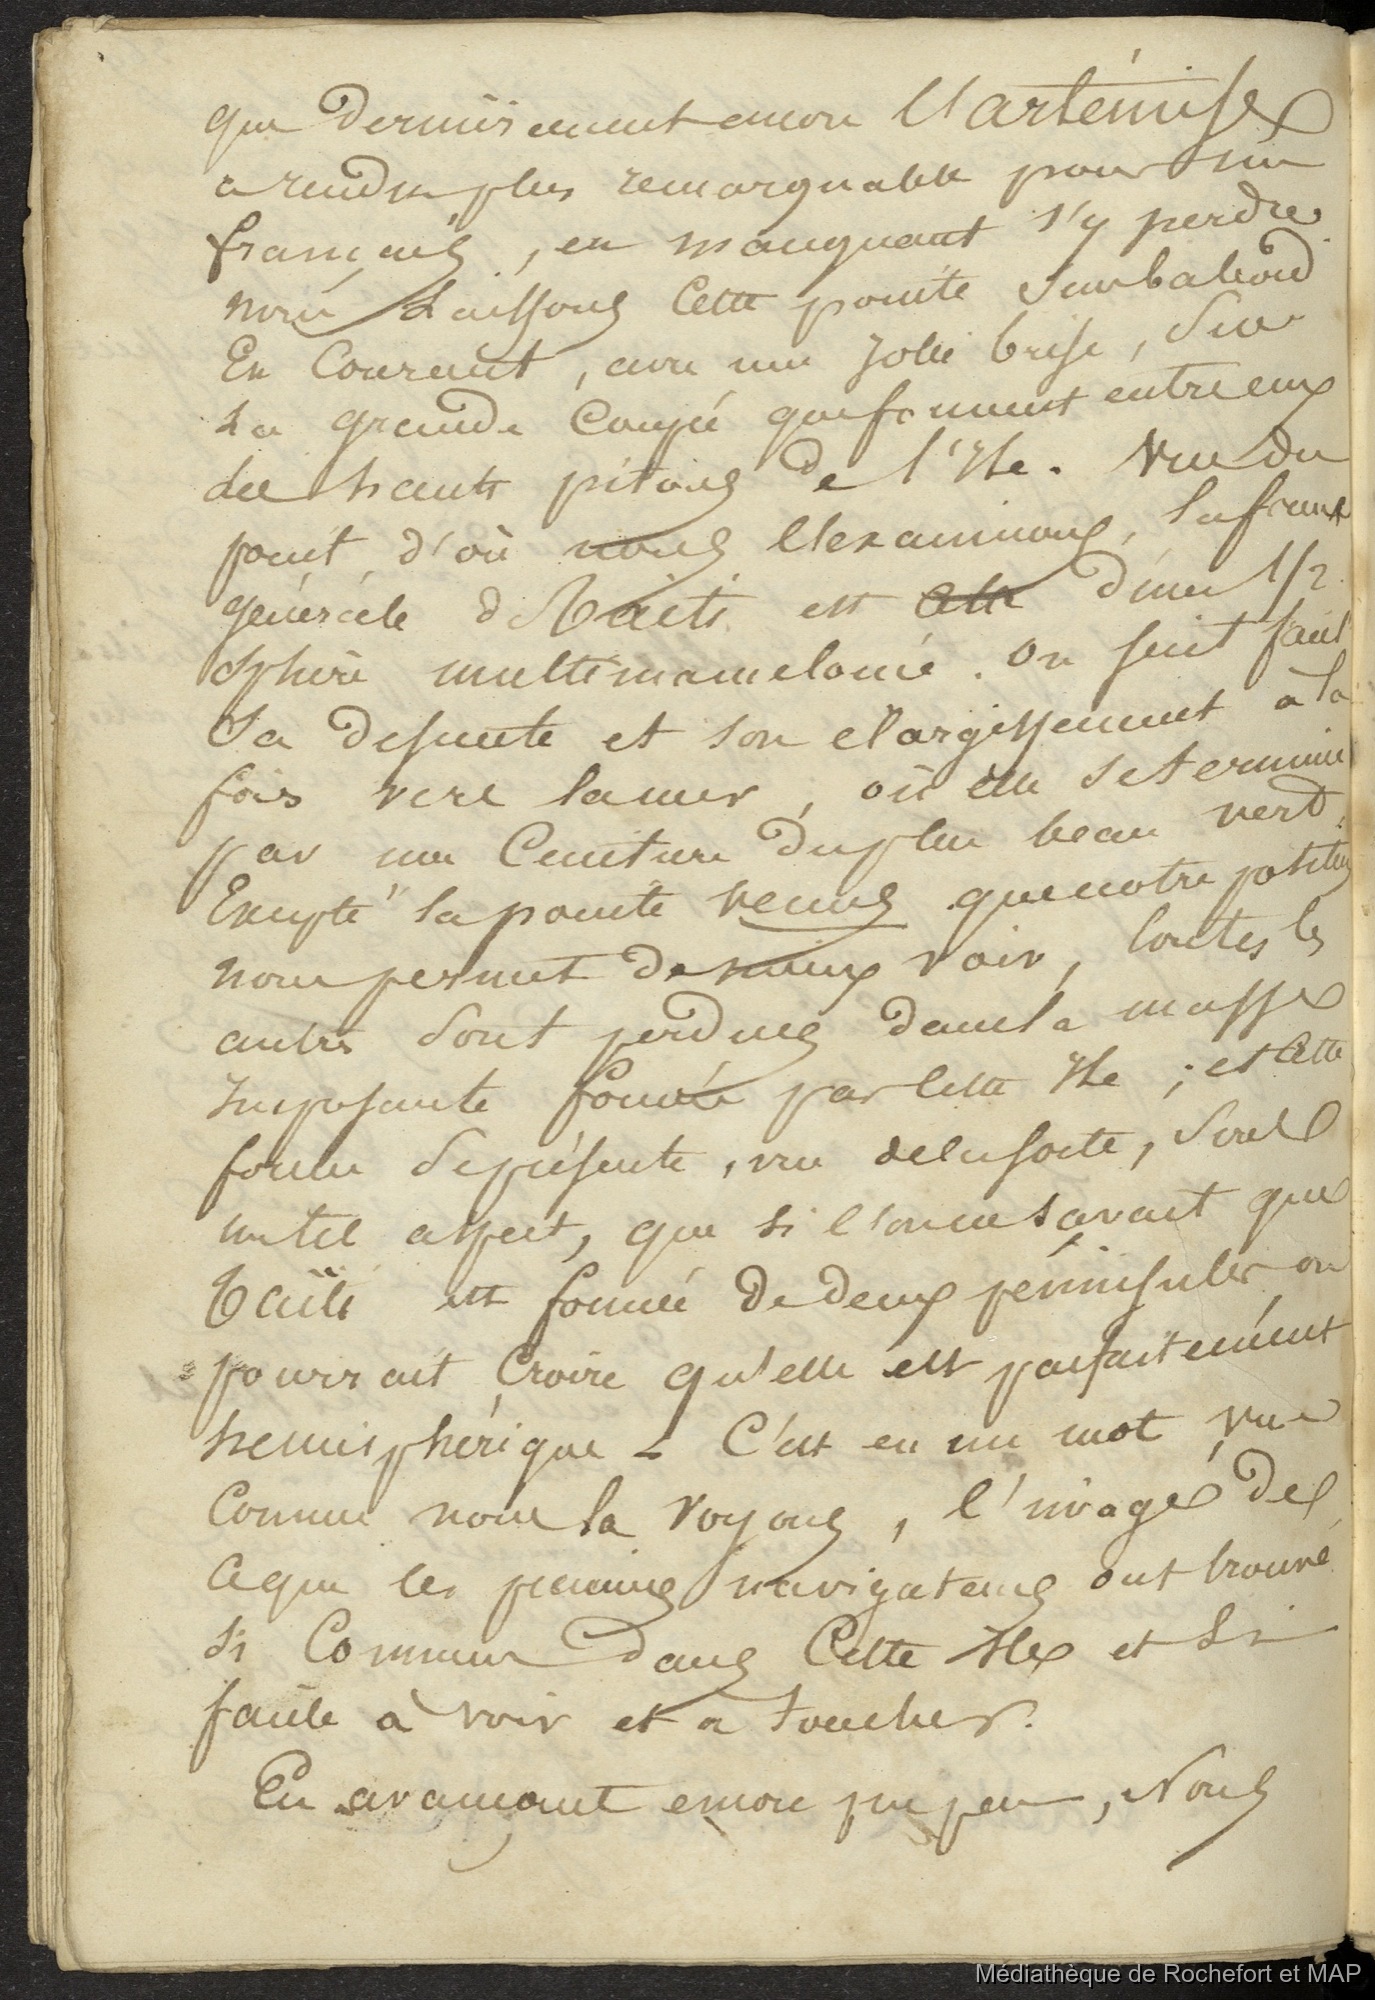 que dernièrement encore l'artémise
a rendue plus remarquable pour un
français, en manquant s'y perdre.
nous Laissons Cette pointe sur babord
En Courant, avec une jolie brise, Sur
La grande Coupée que forment entre eux
des hauts pitons de l'Ile. Vue du
point d'où nous l'examinons, la forme
générale d'O taïti est d'une 1/2
sphère multimamelonée. On suit
Sa descente et son elargissement à la
fois vers la mer, où elle se termine
par une Ceinture du plus beau vert.
Excepté la pointe venus que notre position
nous permet de mieux voir, toutes les
autres Sont perdues dans la masse
Imposante formée par cette Ile ; et Cette
forme Se présente, vue de la sorte, Sous
un tel aspect, que si l'on ne savait que
taïti est formée de deux péninsules on
pourrait Croire qu'elle est parfaitement
hemisphérique - C'est en un mot, vue
Comme nous la voyons, l'image de
ce que les premiers navigateurs ont trouvé
si Commun dans Cette Ile et Si
facile à voir et a toucher.
En avançant encore un peu, Nous
Médiathèque de Rochefort et MAP